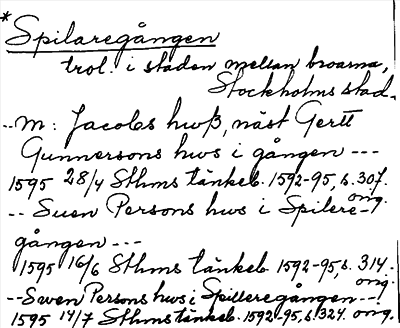 * Spilaregången
trol. i staden mellan broarna,
Stockholms stad.
-- M: Jacobs hwß, näst Gertt
Gunnersons hws i gången ---
1595 28/4 Sthms tänkeb. 1592-95, s. 307.
orig.
-- Suen Persons hws i Spilere-
gången ---
1595 16/6 Sthms tänkeb 1592-95, s. 314.
orig.
-- Swen Persons hws i Spilleregången --
1595 14/7 Sthms tänkeb. 1592-95, s. 324. orig.